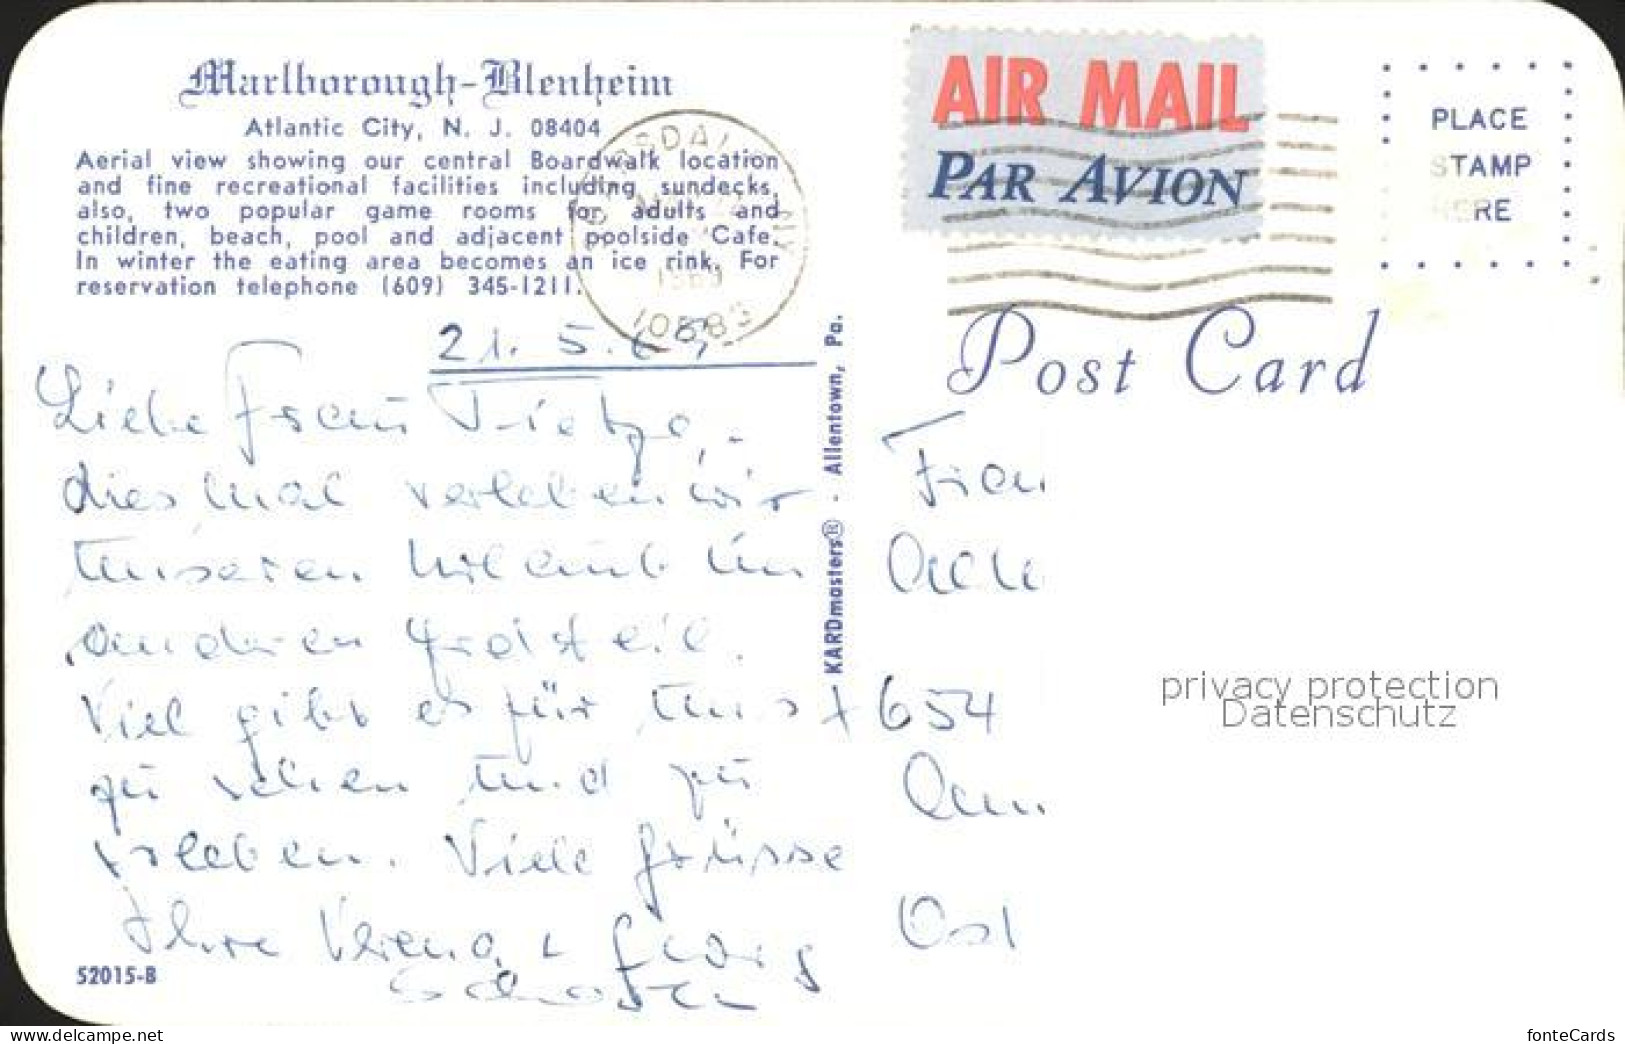 Marlborough-Blenheim
Atlantic City, N. J. 08404
Aerial view showing our central Boardwalk location
and fine recreational facilities including sundecks,
also, two popular game rooms for adults and
children, beach, pool and adjacent poolside Cafe.
In winter the eating area becomes an ice rink. For
reservation telephone (609) 345-1211.
10583
AIR MAIL
PAR AVION
PLACE
STAMP
HERE
Post Card
KARDmasters® - Allentown, Pa.
21. 5. 69
Liebe Frau Tietze,
dies mal verleben wir
unseren Urlaub im
anderen Erdsteil.
Viel gibt es für uns
zu sehen und zu
erleben. Viele Grüsse
Ihre Verena + Georg
52015-B
Frau
x 654
privacy protection
Datenschutz
delcampe.net
fonteCards